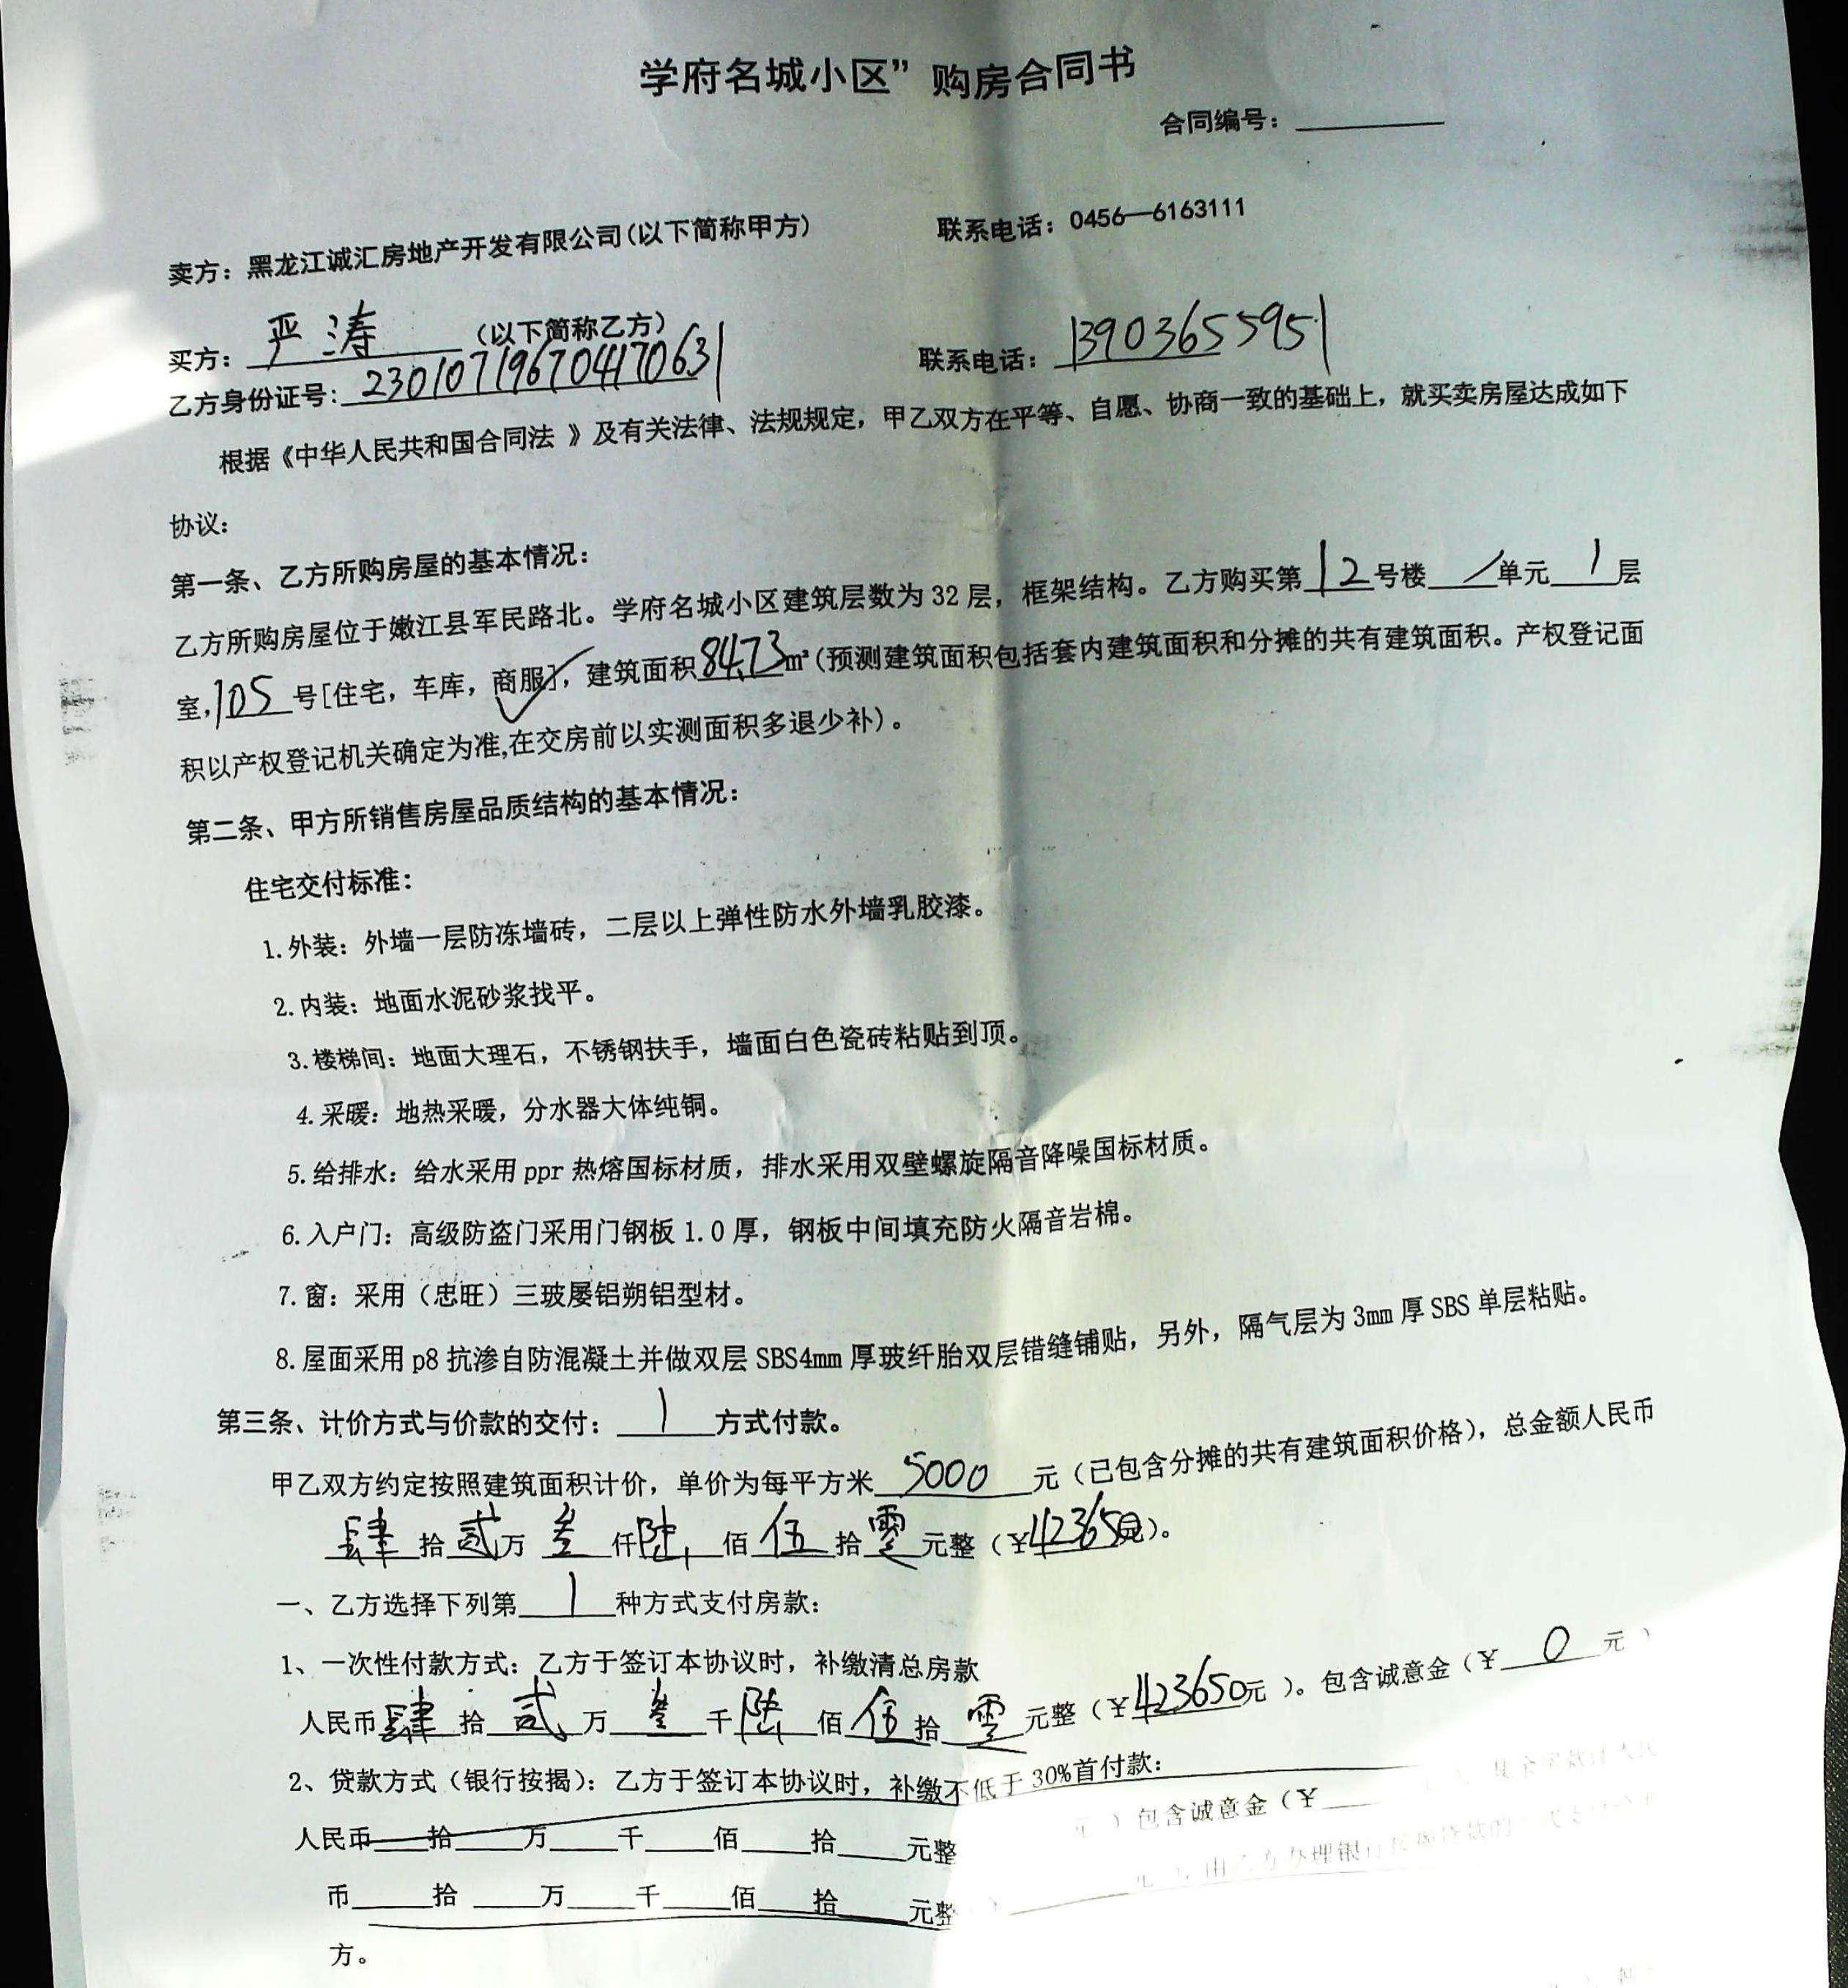 学府名城小区”购房合同书
合同编号：
卖方：黑龙江诚汇房地产开发有限公司(以下简称甲方) 联系电话：0456—6163111
买方：严涛（以下简称乙方） 联系电话：13903655951
乙方身份证号：230107196704170631
根据《中华人民共和国合同法 》及有关法律、法规规定，甲乙双方在平等、自愿、协商一致的基础上，就买卖房屋达成如下
协议：
第一条、乙方所购房屋的基本情况：
乙方所购房屋位于嫩江县军民路北。学府名城小区建筑层数为 32 层，框架结构。乙方购买第 12 号楼 / 单元 1 层
室,105 号[住宅，车库，商服]，建筑面积 84.73 m²(预测建筑面积包括套内建筑面积和分摊的共有建筑面积。产权登记面
积以产权登记机关确定为准,在交房前以实测面积多退少补)。
第二条、甲方所销售房屋品质结构的基本情况：
住宅交付标准：
1.外装：外墙一层防冻墙砖，二层以上弹性防水外墙乳胶漆。
2.内装：地面水泥砂浆找平。
3.楼梯间：地面大理石，不锈钢扶手，墙面白色瓷砖粘贴到顶。
4.采暖：地热采暖，分水器大体纯铜。
5.给排水：给水采用 ppr 热熔国标材质，排水采用双壁螺旋隔音降噪国标材质。
6.入户门：高级防盗门采用门钢板 1.0 厚，钢板中间填充防火隔音岩棉。
7.窗：采用（忠旺）三玻屡铝朔铝型材。
8.屋面采用 p8 抗渗自防混凝土并做双层 SBS4mm 厚玻纤胎双层错缝铺贴，另外，隔气层为 3mm 厚 SBS 单层粘贴。
第三条、计价方式与价款的交付： 1 方式付款。
甲乙双方约定按照建筑面积计价，单价为每平方米 5000 元（已包含分摊的共有建筑面积价格)，总金额人民币
肆 拾 贰 万 叁 仟 陆 佰 伍 拾 零 元整（￥423650元）。
一、乙方选择下列第 1 种方式支付房款：
1、一次性付款方式：乙方于签订本协议时，补缴清总房款
人民币 肆 拾 贰 万 叁 千 陆 佰 伍 拾 零 元整（￥423650元 ）。包含诚意金（￥ 0 元 ）
2、贷款方式（银行按揭）：乙方于签订本协议时，补缴不低于 30%首付款：
人民币 拾 万 千 佰 拾 元整 元 ）包含诚意金（￥
币 拾 万 千 佰 拾 元整
方。